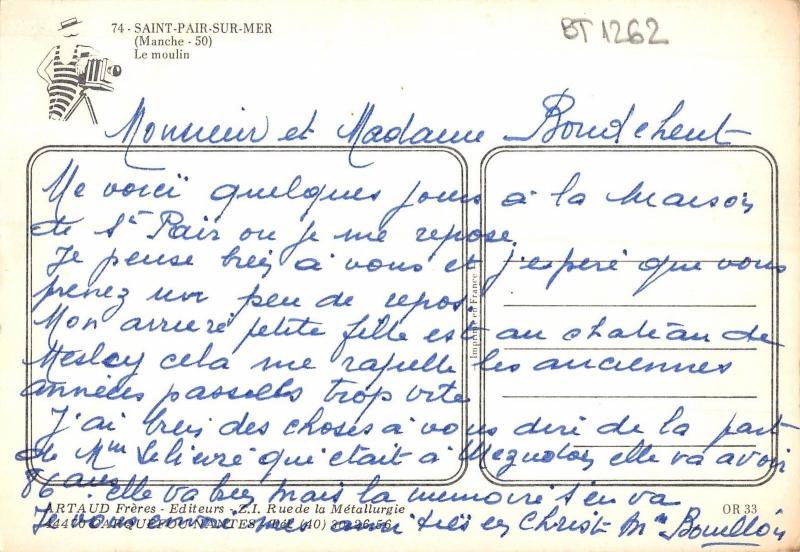 74 - SAINT-PAIR-SUR-MER
(Manche - 50)
Le moulin
BT 1262
Monsieur et Madame
Me voici quelques jours à la maison
de St Pair ou je me repose.
Je pense bien à vous et j'espère que vous
prenez un peu de repos.
Mon arrière petite fille est au chateau de
Meslay cela me rapelle les anciennes
années passées trop vite
J'ai bien des choses à vous dire de la part
de Mme Lelièvre qui était à elle va avoir
86 ans. elle va bien mais la memoire s'en va
Je vous mes en Christ Mme Bouillon
Imprimé en France
ARTAUD Frères - Editeurs - Z.I. Rue de la Métallurgie
44470 CARQUEFOU-NANTES - Tél. (40)
OR 33